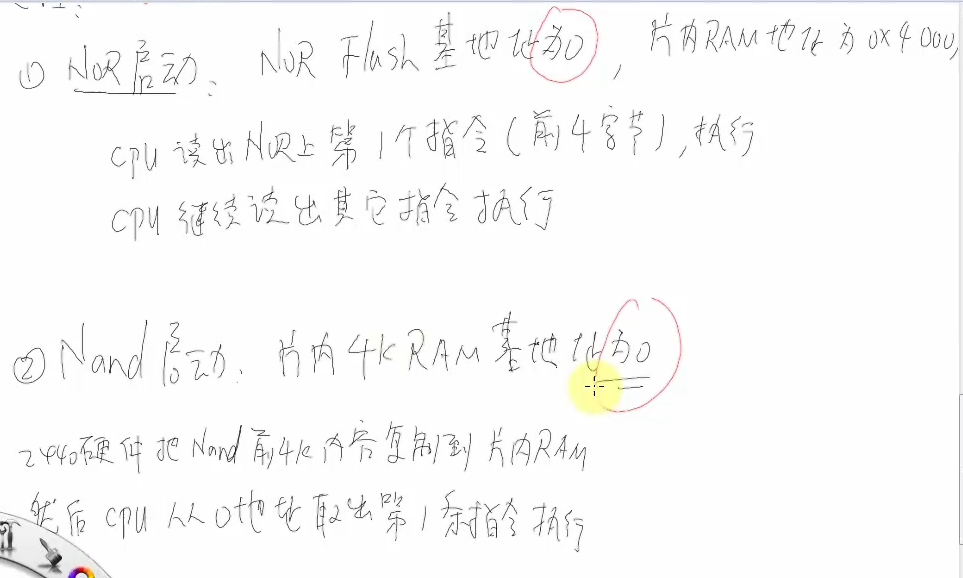 ① NOR启动: NOR Flash基地址为0, 片内RAM地址为0x4000,
CPU读出NOR上第1个指令(前4字节),执行
CPU继续读出其它指令执行
② Nand启动: 片内4k RAM基地址为0
2440硬件把Nand前4k内容复制到片内RAM
然后CPU从0地址取出第1条指令执行